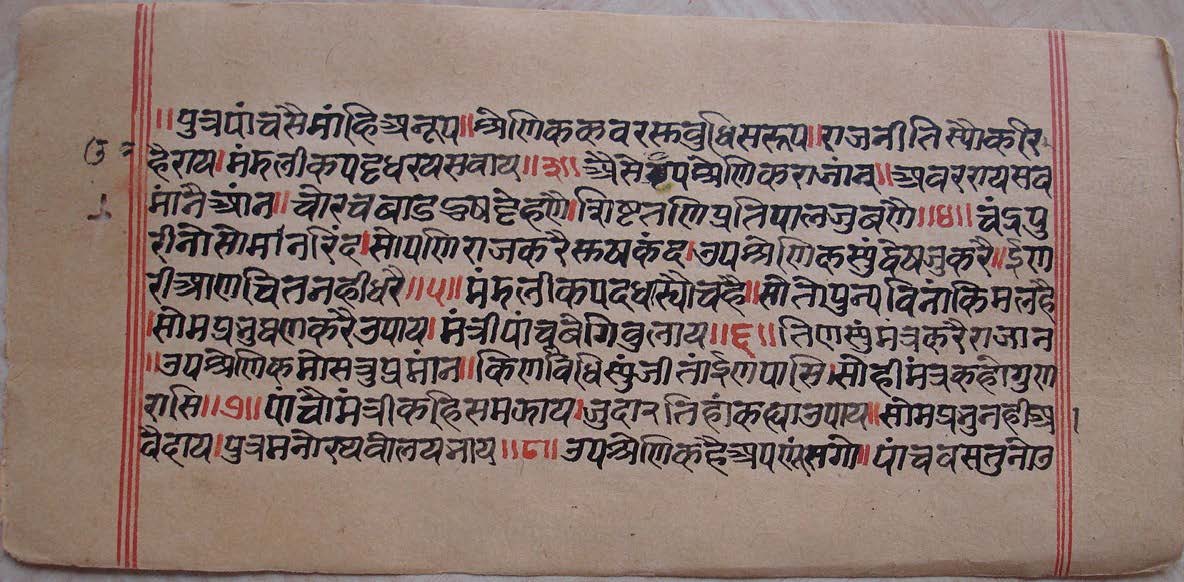 ॥पुत्रपांचसैमांहिअनूप॥श्रेणिककवरसुबुधिसरूप॥राजनीतिस्यौकरि
हैराय।मंडलीकपदृधरयसवाय॥३॥अैसैउपश्रेणिकराजांन॥अवररायसव
मांनैआंन॥चोरचबाडदुष्टदेहणै।शिष्टतणिप्रतिपालजुबणै॥४॥चंद्रपु
रीनोसोमांनरिंद।सोपणिराजकरैसुषकंद।उपश्रेणिकसुंद्वेषजुकरै॥ईण
रीआणचितनहीधरै॥५॥मंडलीकपदधास्यौचहै॥सोतोपुन्यविनांकिमलहै
।सोमप्रभुषणकरैउपाय।मंत्रीपांचूबैगिबुलाय॥६॥तिणसुंमत्रकरैराजान
॥उपश्रेणिकमोसत्रुप्रमांन॥किणविधिसुंजीतांईणपासि।सोहीमंत्रकहोगुण
रासि॥७॥पांचौमंत्रीकहिसमझाय।जुदारतिहांकह्याउपाय॥सोमप्रभुनहीअ
वैदाय।पुत्रमनोरथवीलयजाय॥८॥उपश्रेणिकहैअपणंसगो॥पांचवसतुनोउ